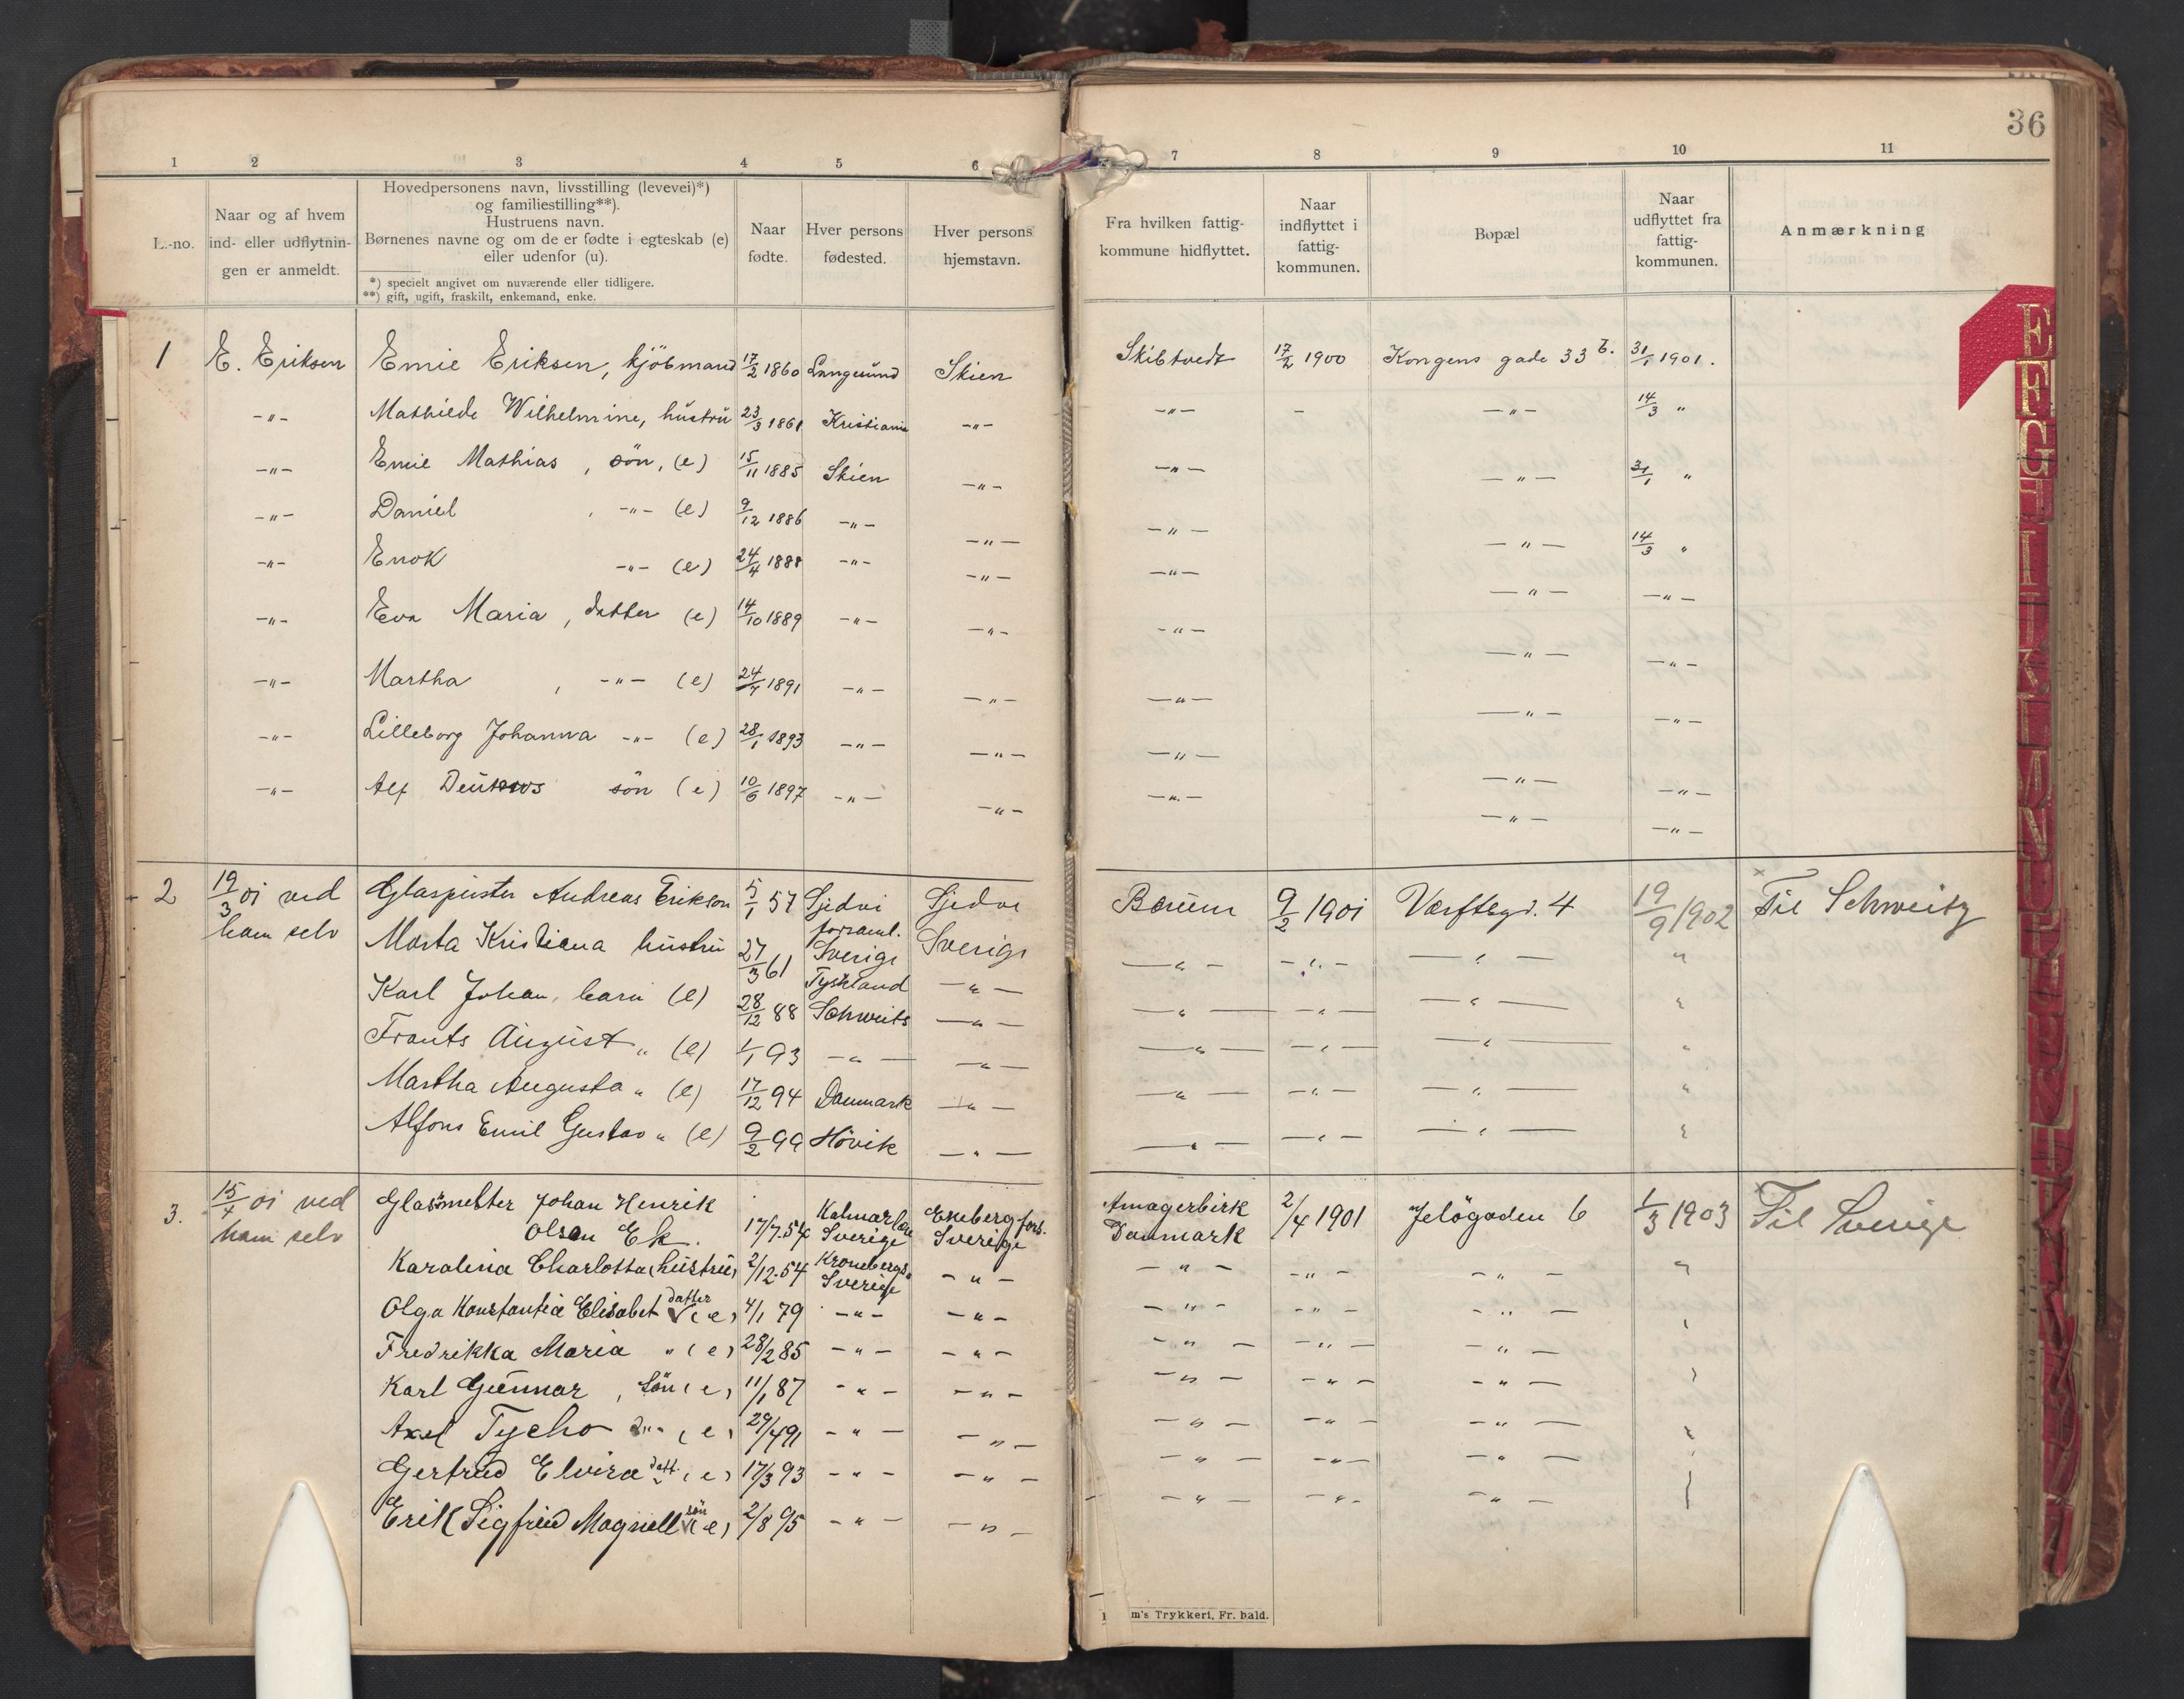 36
1 2 3 4 5 6 7 8 9 10 11
L.-no.
Naar og af hvem
ind- eller udflytnin-
gen er anmeldt.
Hovedpersonens navn, livsstilling (levevei)*)
og familiestilling**).
Hustruens navn.
Børnenes navne og om de er fødte i egteskab (e)
eller udenfor (u).
*) specielt angivet om nuværende eller tidligere.
**) gift, ugift, fraskilt, enkemand, enke.
Naar
fødte.
Hver persons
fødested.
Hver persons
hjemstavn.
Fra hvilken fattig-
kommune hidflyttet.
Naar
indflyttet i
fattig-
kommunen.
Bopæl
Naar
udflyttet fra
fattig-
kommunen.
Anmærkning
1 E. Eriksen Emil Eriksen, kjöbmand 17/2 1860 Langesund Skien Skibtvedt 17/2 1900 Kongens gade 33 b. 31/1 1901.
-"- Mathilde Wilhelmine, hustru 23/3 1861 Kristiania -"- -"- - -"- 14/3 "
-"- Emil Mathias, sön, (e) 15/11 1885 Skien -"- -"- -"- 31/1 "
-"- Daniel, -"- (e) 9/12 1886 -"- -"- -"- -"- 14/3 "
-"- Enok -"- (e) 24/4 1888 -"- -"- -"- -"- -"-
-"- Eva Maria, datter (e) 14/10 1889 -"- -"- -"- -"- -"-
-"- Martha, -"- (e) 24/7 1891 -"- -"- -"- -"- -"-
-"- Lilleborg Johanna -"- (e) 28/1 1893 -"- -"- -"- -"- -"-
-"- Alf sön (e) 10/6 1897 -"- -"- -"- -"- -"-
2 19/3 01 ved Glaspuster Andreas Erikson 5/1 57 Gjedvi Gjedvi Bærum 9/2 1901 Værftsgd. 4 19/9 1902 Til Schweitz
ham selv forsaml.
Marta Kristiana hustru 27/3 61 Sverige Sverige -"- -"- -"- "
Tyskland
Karl Johan, barn (e) 28/12 88 Schweits -"- -"- -"- -"- "
Frants August " (e) 1/1 93 -"- -"- -"- -"- -"- "
Martha Augusta " (e) 17/12 94 Danmark -"- -"- -"- -"- "
Alfons Emil Gustav " (e) 9/2 99 Hövik -"- -"- -"- -"- "
3. 15/4 01 ved Glassmelter Johan Henrik Kalmar län Ekeberg fors. Amagerbirk 2/4 1901 Jelögaden 6 1/3 1903 Til Sverige
ham selv Olsen Ek. 17/7.54 Sverige Sverige Danmark
Karalina Charlotta (hustru) 2/12.54 Kronebergs" -"- -"- -"- -"- "
Sverige
datter
Olga Konstantia Elisabet V (e) 4/1 79 -"- -"- -"- -"- -"- "
Fredrikka Maria " (e) 28/2 85 -"- -"- -"- -"- -"-
Karl Gunnar, sön (e) 11/1 87 -"- -"- -"- -"- -"-
Axel Tycho -"- (e) 29/4 91 -"- -"- -"- -"- -"-
Gertrud Elvira datt. (e) 17/3 93 -"- -"- -"- -"- -"-
sön
Erik Sigfried Magnell V (e) 2/8 95 -"- -"- -"- -"- -"-
m's Trykkeri, Fr. hald.